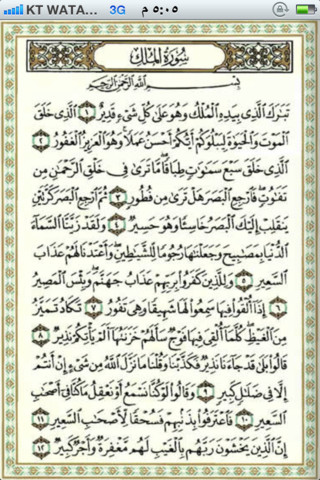 KT WATA... 3G ٥:٠٥ م
سورة الملك
بسم الله الرحمن الرحيم
تَبَٰرَكَ ٱلَّذِى بِيَدِهِ ٱلْمُلْكُ وَهُوَ عَلَىٰ كُلِّ شَىْءٍ قَدِيرٌ ١ ٱلَّذِى خَلَقَ
ٱلْمَوْتَ وَٱلْحَيَوٰةَ لِيَبْلُوَكُمْ أَيُّكُمْ أَحْسَنُ عَمَلًا وَهُوَ ٱلْعَزِيزُ ٱلْغَفُورُ ٢
ٱلَّذِى خَلَقَ سَبْعَ سَمَٰوَٰتٍ طِبَاقًا مَّا تَرَىٰ فِى خَلْقِ ٱلرَّحْمَٰنِ مِن
تَفَٰوُتٍ فَٱرْجِعِ ٱلْبَصَرَ هَلْ تَرَىٰ مِن فُطُورٍ ٣ ثُمَّ ٱرْجِعِ ٱلْبَصَرَ كَرَّتَيْنِ
يَنقَلِبْ إِلَيْكَ ٱلْبَصَرُ خَاسِئًا وَهُوَ حَسِيرٌ ٤ وَلَقَدْ زَيَّنَّا ٱلسَّمَآءَ
ٱلدُّنْيَا بِمَصَٰبِيحَ وَجَعَلْنَٰهَا رُجُومًا لِّلشَّيَٰطِينِ وَأَعْتَدْنَا لَهُمْ عَذَابَ
ٱلسَّعِيرِ ٥ وَلِلَّذِينَ كَفَرُوا۟ بِرَبِّهِمْ عَذَابُ جَهَنَّمَ وَبِئْسَ ٱلْمَصِيرُ
٦ إِذَآ أُلْقُوا۟ فِيهَا سَمِعُوا۟ لَهَا شَهِيقًا وَهِىَ تَفُورُ ٧ تَكَادُ تَمَيَّزُ
مِنَ ٱلْغَيْظِ كُلَّمَآ أُلْقِىَ فِيهَا فَوْجٌ سَأَلَهُمْ خَزَنَتُهَآ أَلَمْ يَأْتِكُمْ نَذِيرٌ ٨
قَالُوا۟ بَلَىٰ قَدْ جَآءَنَا نَذِيرٌ فَكَذَّبْنَا وَقُلْنَا مَا نَزَّلَ ٱللَّهُ مِن شَىْءٍ إِنْ أَنتُمْ
إِلَّا فِى ضَلَٰلٍ كَبِيرٍ ٩ وَقَالُوا۟ لَوْ كُنَّا نَسْمَعُ أَوْ نَعْقِلُ مَا كُنَّا فِىٓ أَصْحَٰبِ
ٱلسَّعِيرِ ١٠ فَٱعْتَرَفُوا۟ بِذَنۢبِهِمْ فَسُحْقًا لِّأَصْحَٰبِ ٱلسَّعِيرِ ١١
إِنَّ ٱلَّذِينَ يَخْشَوْنَ رَبَّهُم بِٱلْغَيْبِ لَهُم مَّغْفِرَةٌ وَأَجْرٌ كَبِيرٌ ١٢